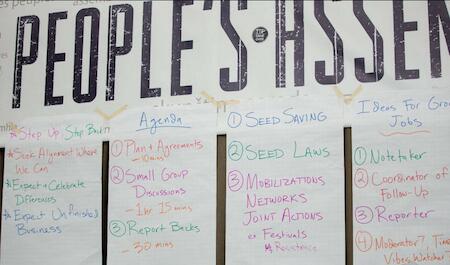 PEOPLE'S ASSEM
* Step Up, Step Back
* Seek Alignment Where
We Can
* Expect + Celebrate
Differences
* Expect Unfinished
Business
Agenda
① Plan + Agreements
- 10 mins
② Small Group
Discussions
- 1 hr 15 mins
③ Report Backs
- 30 mins
① SEED SAVING
② SEED LAWS
③ MOBILIZATIONS
NETWORKS
JOINT ACTIONS
ex Festivals
Resistance
Ideas For Gro
Jobs
① Notetaker
② Coordinator of
Follow-Up
③ Reporter
④ Moderator?, Time
Vibes Watcher